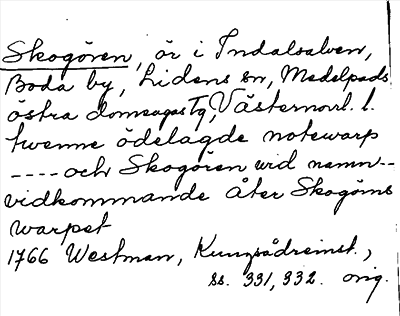 Skogören, ör i Indalsälven,
Boda by, Lidens sn, Medelpads
östra domsagas Tg, Västernorrl. l.
twenne ödelagde notewarp
---- och Skogören wid namn--
vidkommande åter Skogörns
warpet
1766 Westman,
ss. 331, 332. orig.